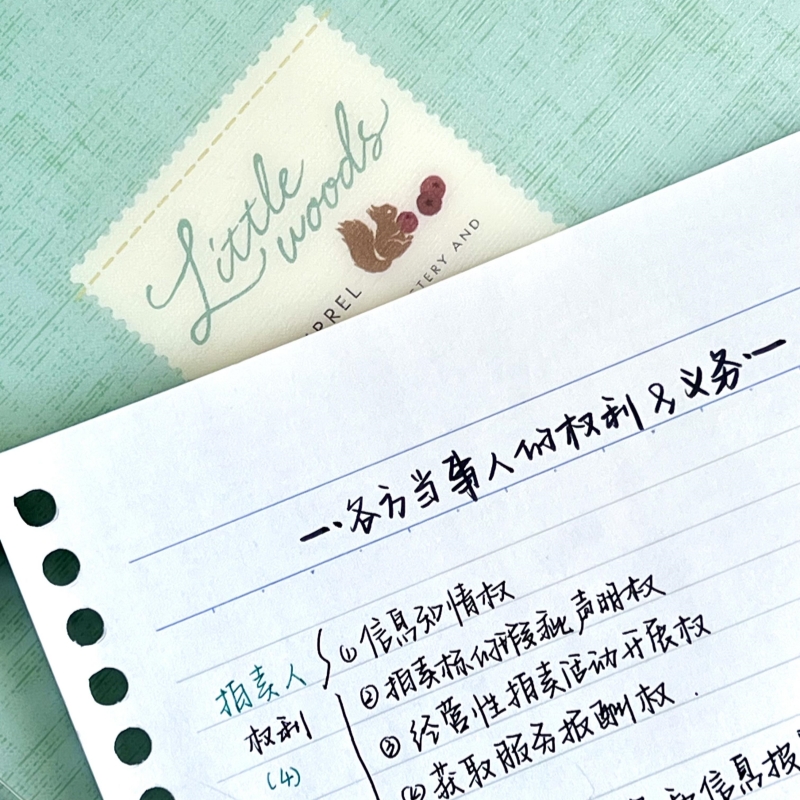 Little
woods
一·各方当事人的权利及义务·一
①信息知情权
②拍卖标的瑕疵声明权
拍卖人
③经营性拍卖活动开展权
权利
④获取服务报酬权.
(4)
信息